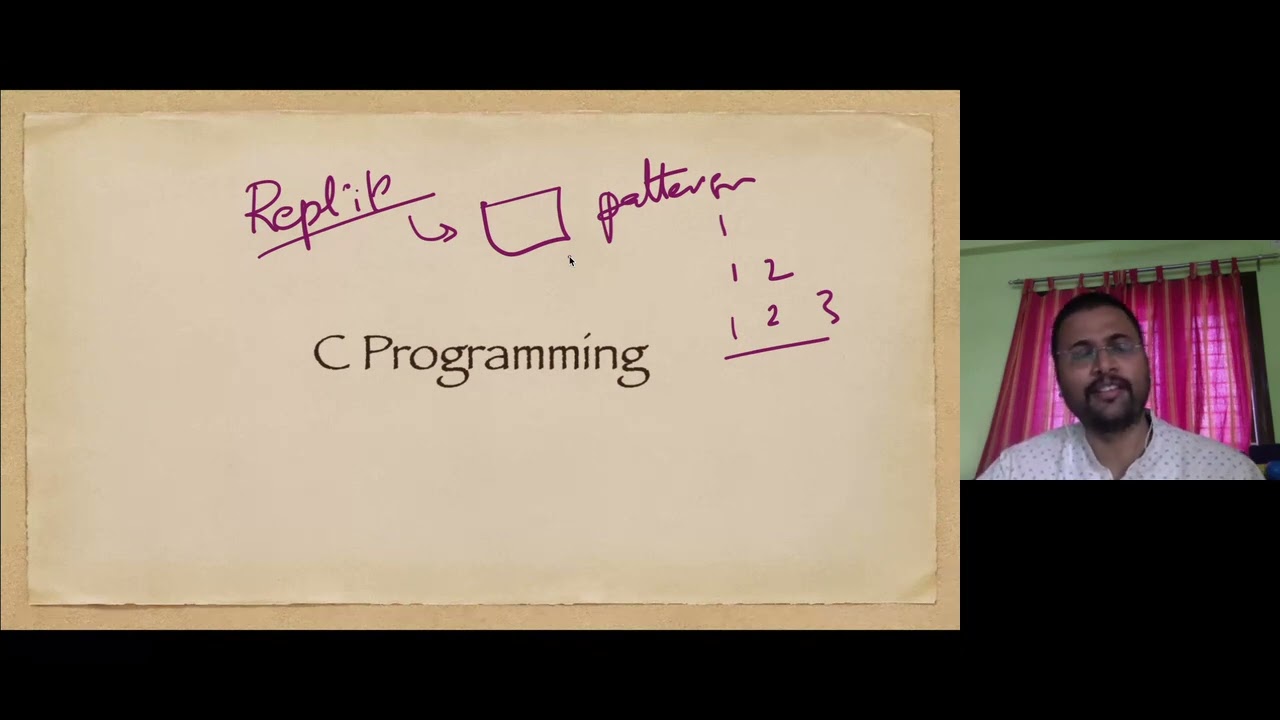 Repl.it
pattern
1
1 2
1 2 3
C Programming